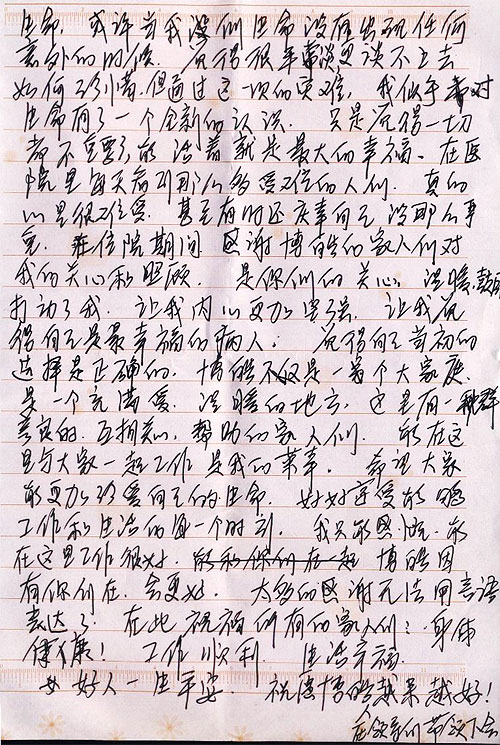 生命. 或许当我没们生命没有出现任何
意外的时候. 觉得很平常更谈不上去
如何珍惜. 但通过这一次的灾难, 我似乎对
生命有了一个全新的认识. 只是觉得一切
都不重要了, 能活着就是最大的幸福. 在医
院里每天看到那么多受难的人们. 真的
心里很难受. 甚至有时还庆幸自己没那么
在住院期间 感谢博皓的家人们对
我的关心和照顾. 是你们的关心, 温暖, 鼓
打动了我. 让我内心更加坚强. 让我觉
得自己是最幸福的病人. 觉得自己当初的
选择是正确的. 博皓不仅是一个大家庭.
是一个充满爱. 温暖的地方, 这里有一群
善良的. 互相关心, 帮助的家人们. 能在这
里与大家一起工作是我的荣幸. 希望大家
能更加珍爱自己的生命. 好好享受能够
工作和生活的每一个时刻. 我只能感慨. 能
在这里工作很好. 能和你们在一起 博皓因
有你们在. 会更好. 太多的感谢无法用言语
表达了. 在此祝福所有的家人们: 身体
健康! 工作顺利. 生活幸福.
好人一生平安. 祝愿博皓越来越好!
在领导们带领下会